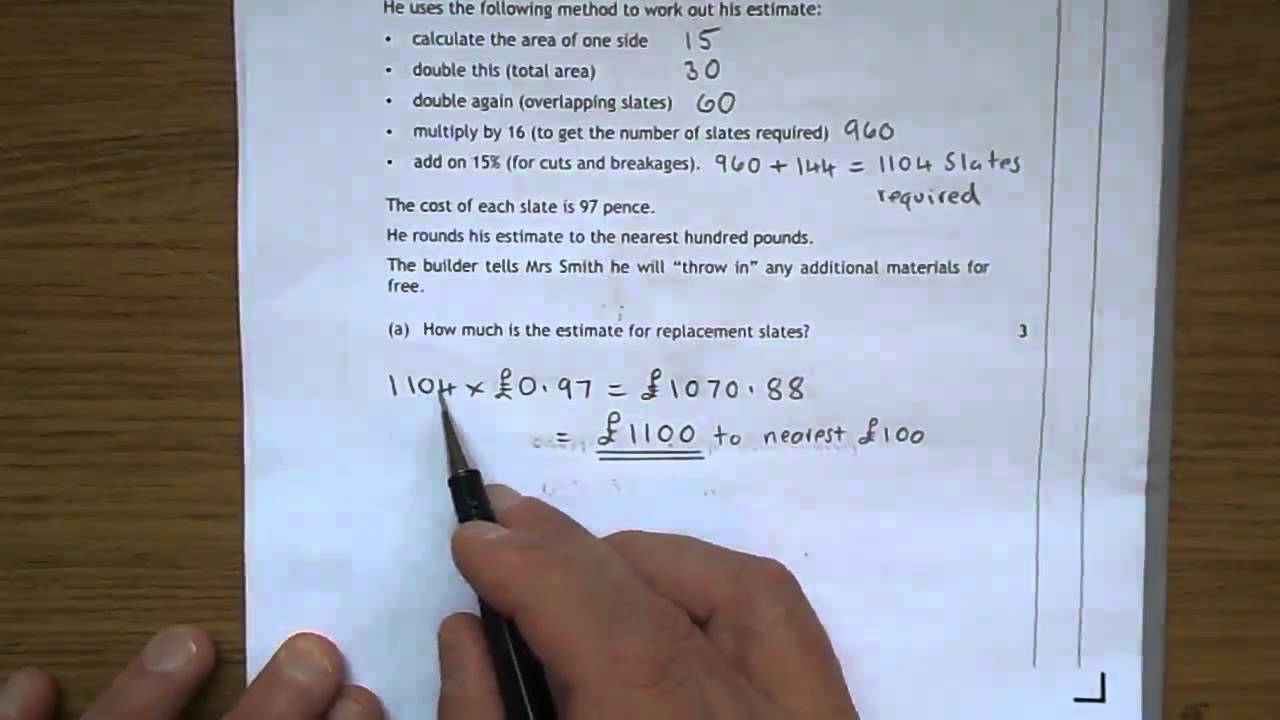 He uses the following method to work out his estimate:
• calculate the area of one side 15
• double this (total area) 30
• double again (overlapping slates) 60
• multiply by 16 (to get the number of slates required) 960
• add on 15% (for cuts and breakages). 960 + 144 = 1104 Slates
required
The cost of each slate is 97 pence.
He rounds his estimate to the nearest hundred pounds.
The builder tells Mrs Smith he will “throw in” any additional materials for
free.
(a) How much is the estimate for replacement slates? 3
1104 × £0.97 = £1070.88
= £1100 to nearest £100